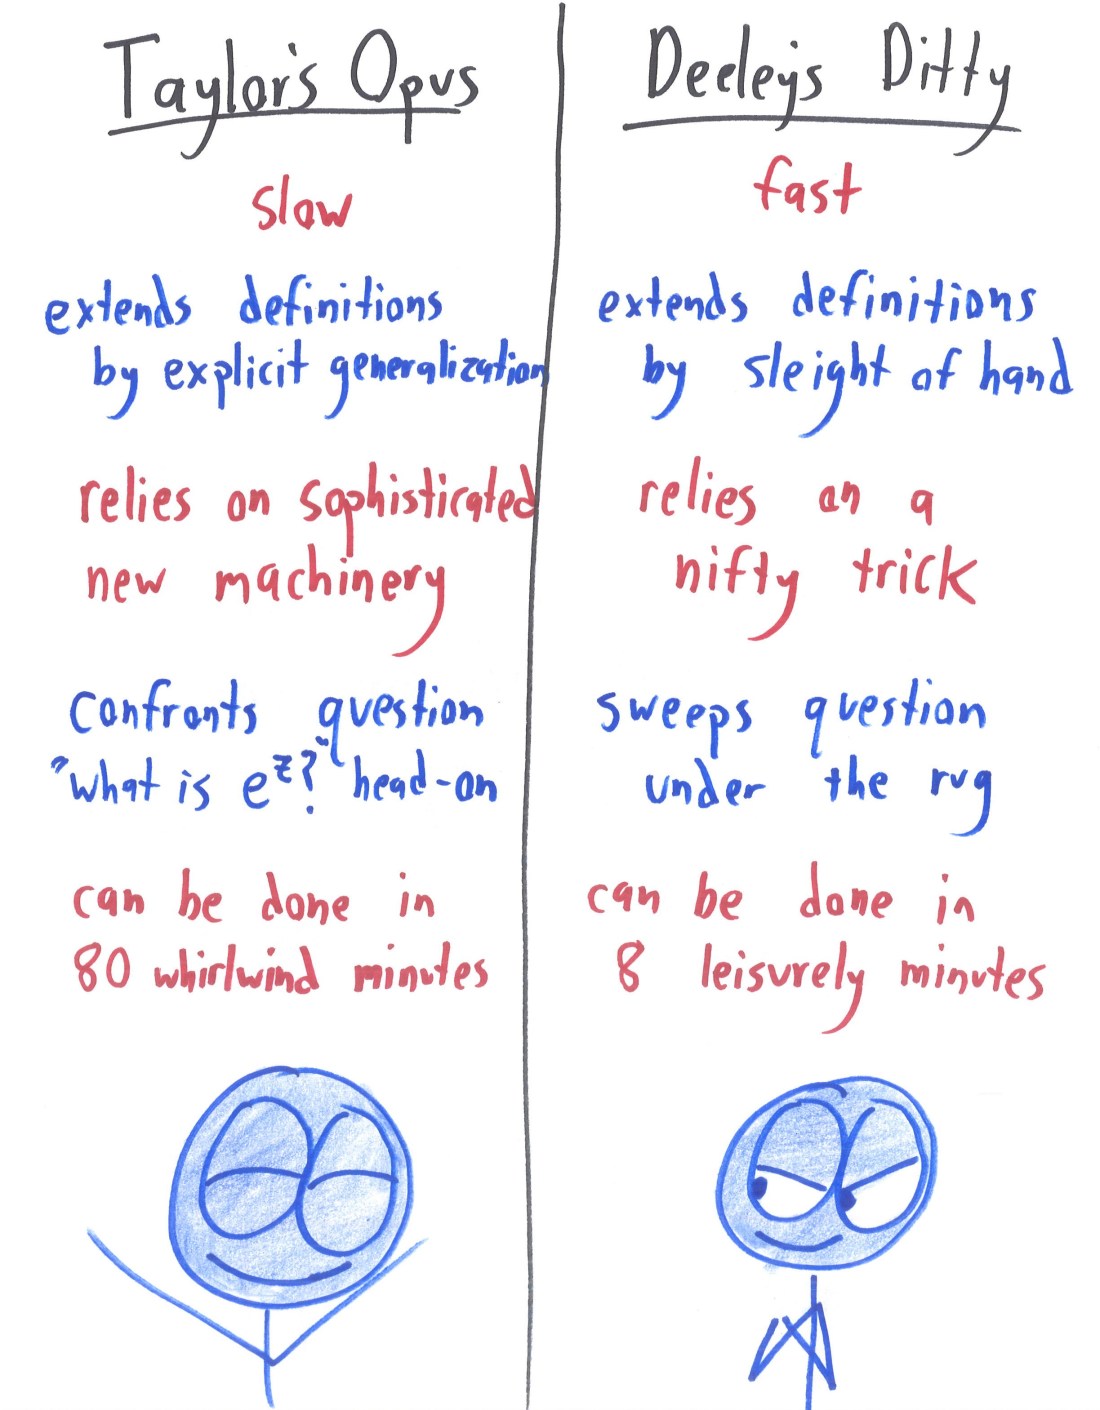 Taylor's Opus
slow
extends definitions
by explicit generalization
relies on sophisticated
new machinery
confronts question
"what is e^z?" head-on
can be done in
80 whirlwind minutes
Deeley's Ditty
fast
extends definitions
by sleight of hand
relies on a
nifty trick
sweeps question
under the rug
can be done in
8 leisurely minutes